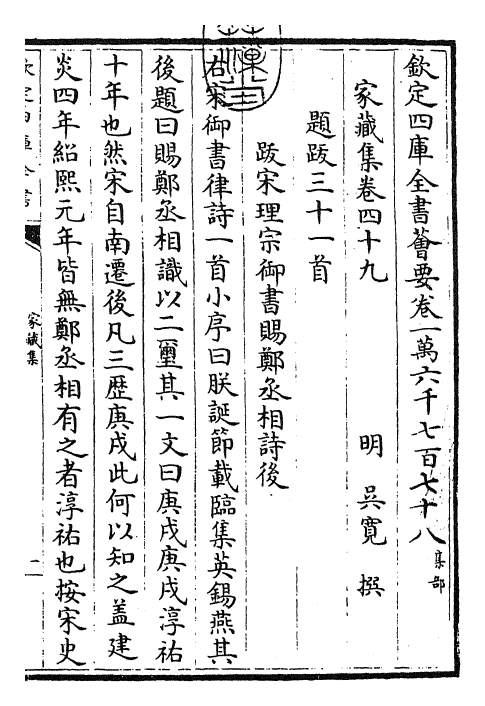 欽定四庫全書薈要卷一萬六千七百七十八集部
家藏集卷四十九
明 吳寬 撰
題跋三十一首
跋宋理宗御書賜鄭丞相詩後
右宋御書律詩一首小序曰朕誕節載臨集英錫燕其
後題曰賜鄭丞相識以二璽其一文曰庚戌庚戌淳祐
十年也然宋自南遷後凡三歴庚戌此何以知之盖建
炎四年紹熙元年皆無鄭丞相有之者淳祐也按宋史
欽定四庫全書
家藏集